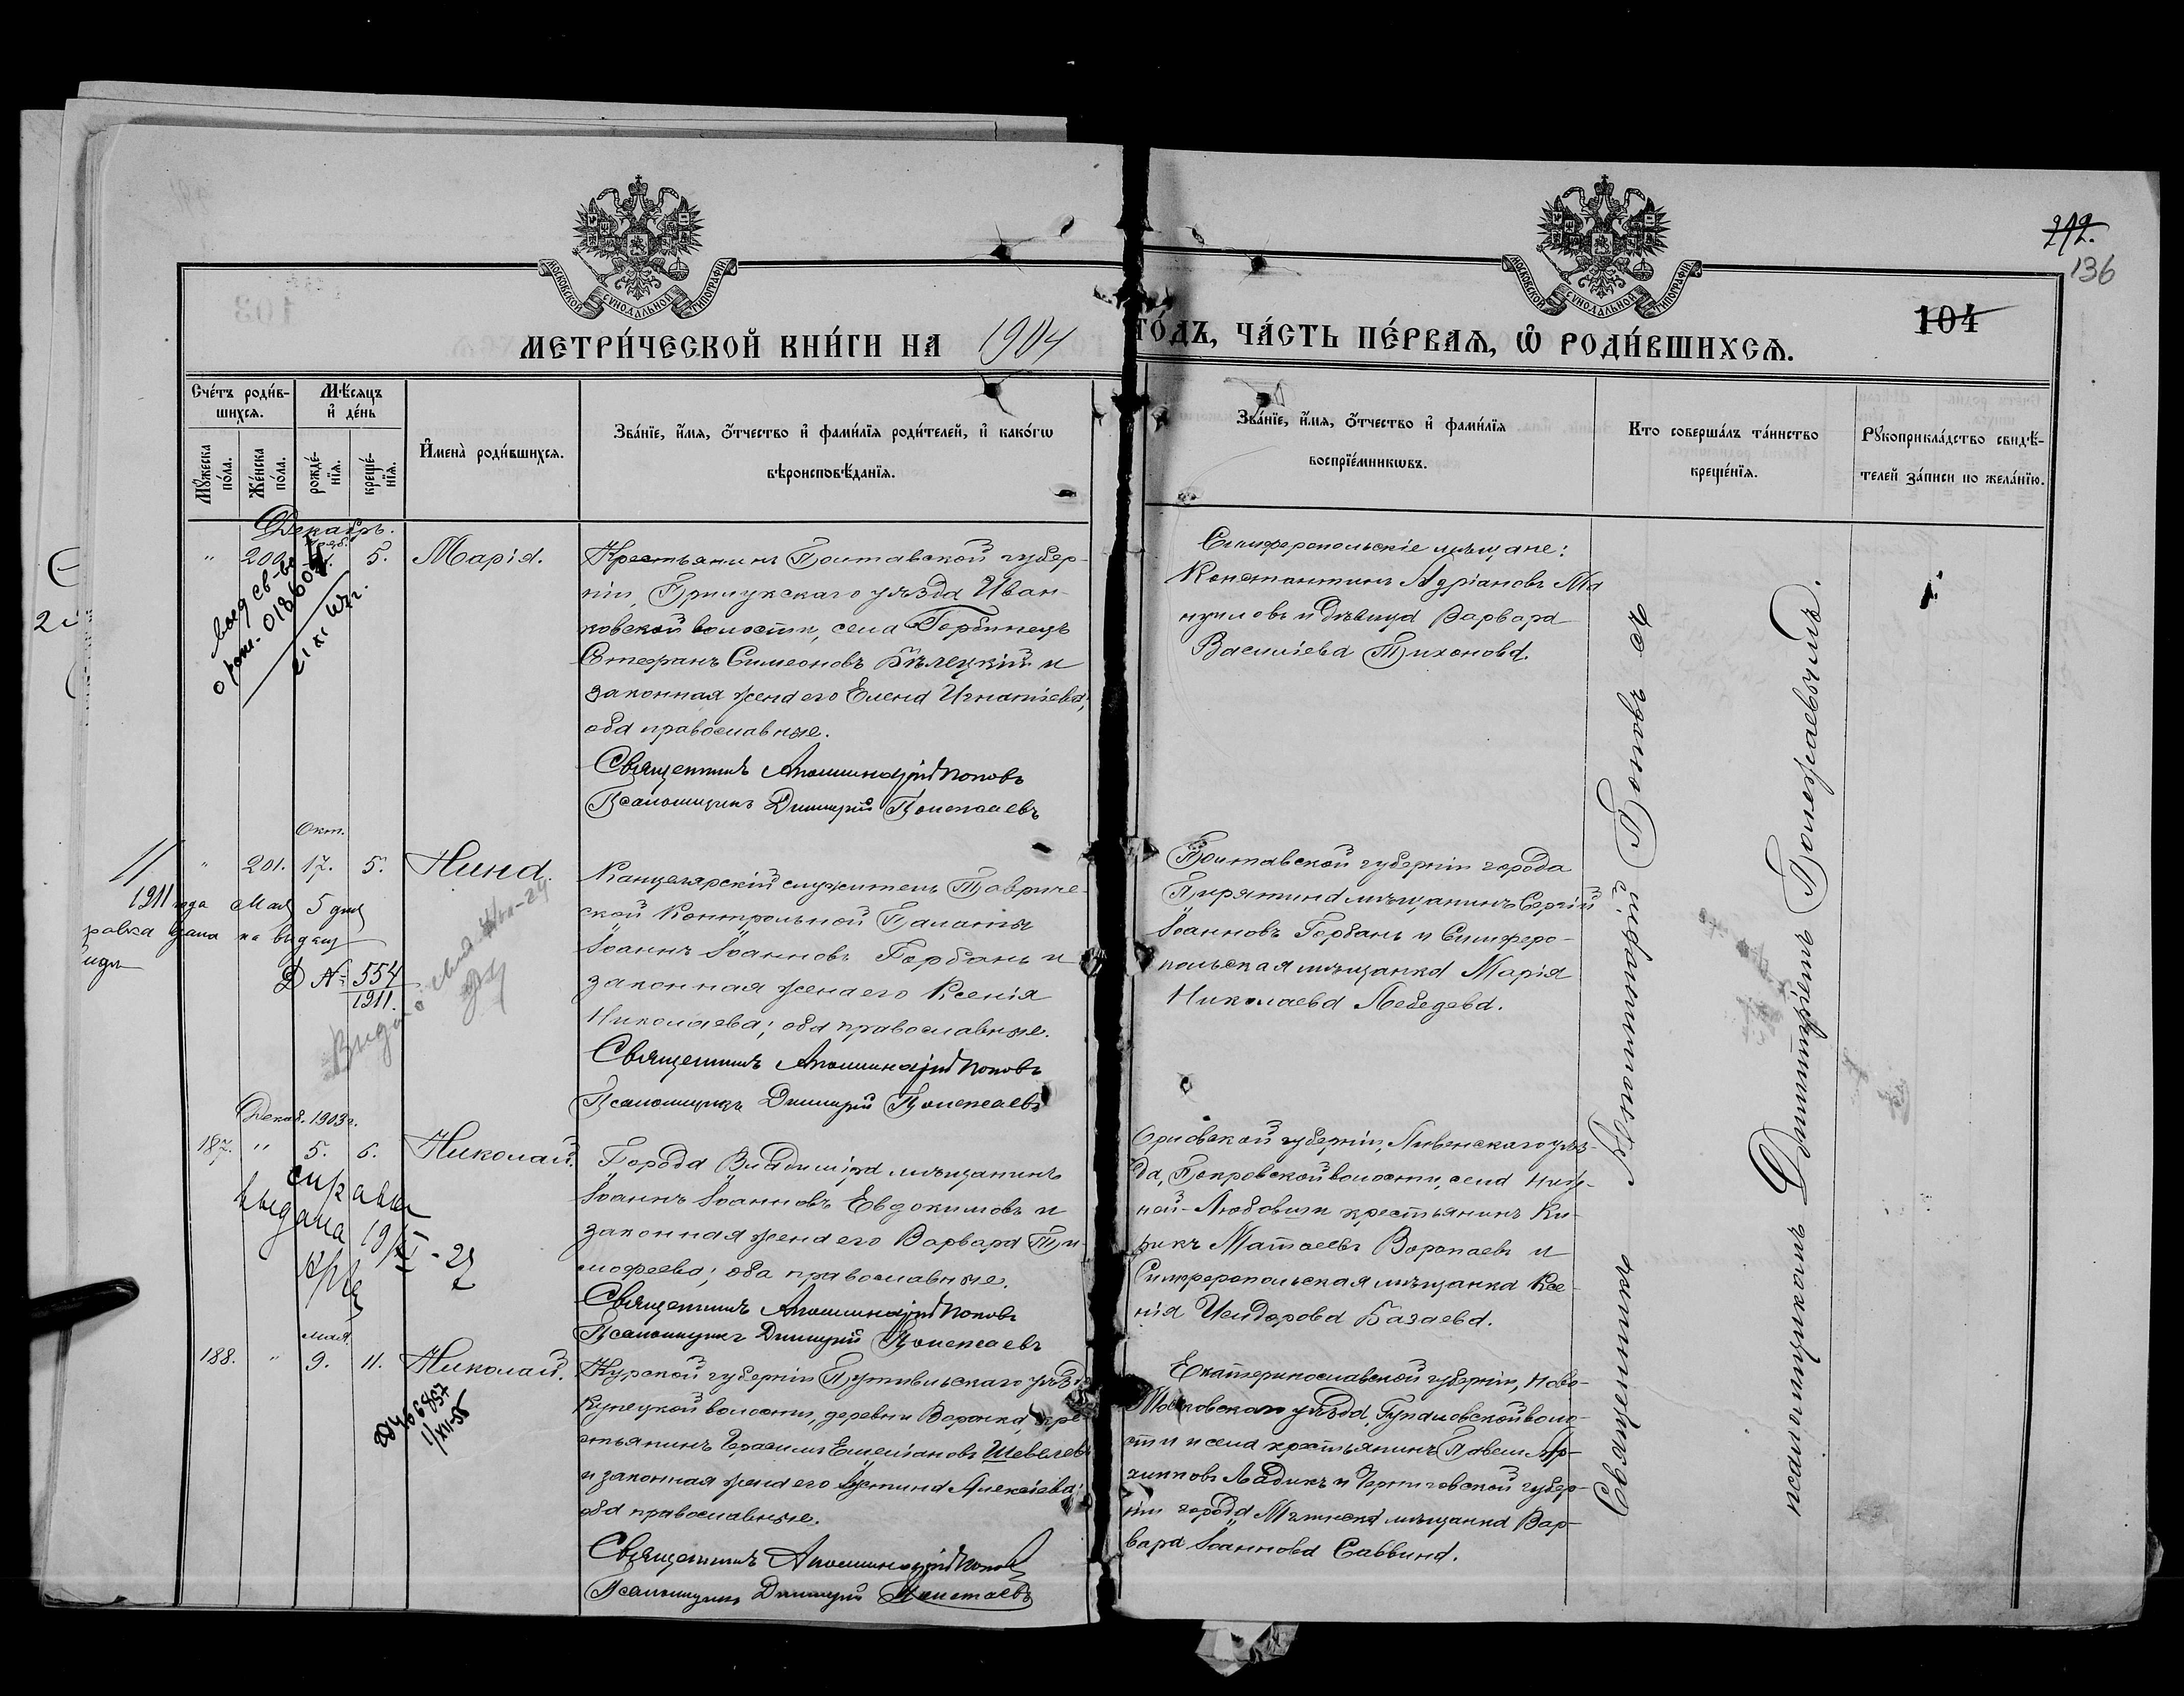 292.
136
104
МОСКОВСКОЙ СѴНОДАЛЬНОЙ ТИПОГРАФІИ
МОСКОВСКОЙ СѴНОДАЛЬНОЙ ТИПОГРАФІИ
МЕТРИ́ЧЕСКОЙ КНИ́ГИ НА 1904 ГО́ДЪ, ЧА́СТЬ ПЕ́РВАѦ, Ѡ РОДИ́ВШИХСѦ.
Сче́тъ роди́в-
шихсѧ.
Мꙋ́жеска по́ла.
Же́нска по́ла.
Мѣ́сѧцъ
и҆ де́нь
рожде́-
нїѧ.
креще́-
нїѧ.
И҆мена̀ роди́вшихсѧ.
Зва́нїе, и҆́мѧ, ѻ҆́тчество и҆ фами́лїѧ роди́телей, и҆ како́гѡ
вѣроисповѣ́данїѧ.
Зва́нїе, и҆́мѧ, ѻ҆́тчество и҆ фами́лїѧ
воспрїе́мникѡвъ.
Кто соверша́лъ та́инство
креще́нїѧ.
Рꙋкоприкла́дство свидѣ́-
телей за́писи по жела́нїю.
Декабрь.
" 200. 5. Марія.
Крестьянинъ Полтавской губер-
ніи, Прилукскаго уѣзда Иван-
ковской волости, села Горбинецъ
Стефанъ Симеоновъ Бѣлецкій и
законная жена его Елена Игнатіева;
оба православные.
Священникъ Аполлинарій Поповъ
Псаломщикъ Димитрій Полежаевъ
Симферопольскіе мѣщане:
Константинъ Адріановъ Ма
нуиловъ и дѣвица Варвара
Василіева Тихонова.
Окт.
" 201. 17. 5. Нина.
1911 года Мая 5 дня
равка дана на выдачу
№ 554
1911.
Канцелярскій служитель Тавриче-
ской Контрольной Палаты
Іоаннъ Іоанновъ Горбань и
законная жена его Ксенія
Николаева; оба православные.
Священникъ Аполлинарій Поповъ
Псаломщикъ Димитрій Полежаевъ
Полтавской губерніи города
Пирятина мѣщанинъ Сергій
Іоанновъ Горбань и Симферо-
польская мѣщанка Марія
Николаева Лебедева.
Декаб. 1903 г.
187. " 5. 6. Николай.
справка
выдана 19/XI-29
Города Владиміра мѣщанинъ
Іоаннъ Іоанновъ Евдокимовъ и
законная жена его Варвара Ти-
мофеева; оба православные.
Священникъ Аполлинарій Поповъ
Псаломщикъ Димитрій Полежаевъ
Орловской губерніи, Ливенскаго уѣз-
да, Покровской волости, села Ниж-
ней-Любовши крестьянинъ Ки-
рикъ Матѳеевъ Воропаевъ и
Симферопольская мѣщанка Ксе-
нія Исидорова Базаева.
мая
188. " 9. 11. Николай.
Курской губерніи Путивльскаго уѣзда
Купецкой волости, деревни Воронка, кре
стьянинъ Герасимъ Емеліановъ Шевелевъ
и законная жена его Іустина Алексіева;
оба православные.
Священникъ Аполлинарій Поповъ
Псаломщикъ Димитрій Полежаевъ
Екатеринославской губерніи, Ново-
Московскаго уѣзда, Гупаловской воло-
сти и села крестьянинъ Павелъ Ар-
хиповъ Ладикъ и Черниговской губер-
ніи города Мглина мѣщанка Вар-
вара Іоаннова Саввина.
Священникъ Аполлинарій Поповъ съ
псаломщикомъ Димитріемъ Полежаевымъ.